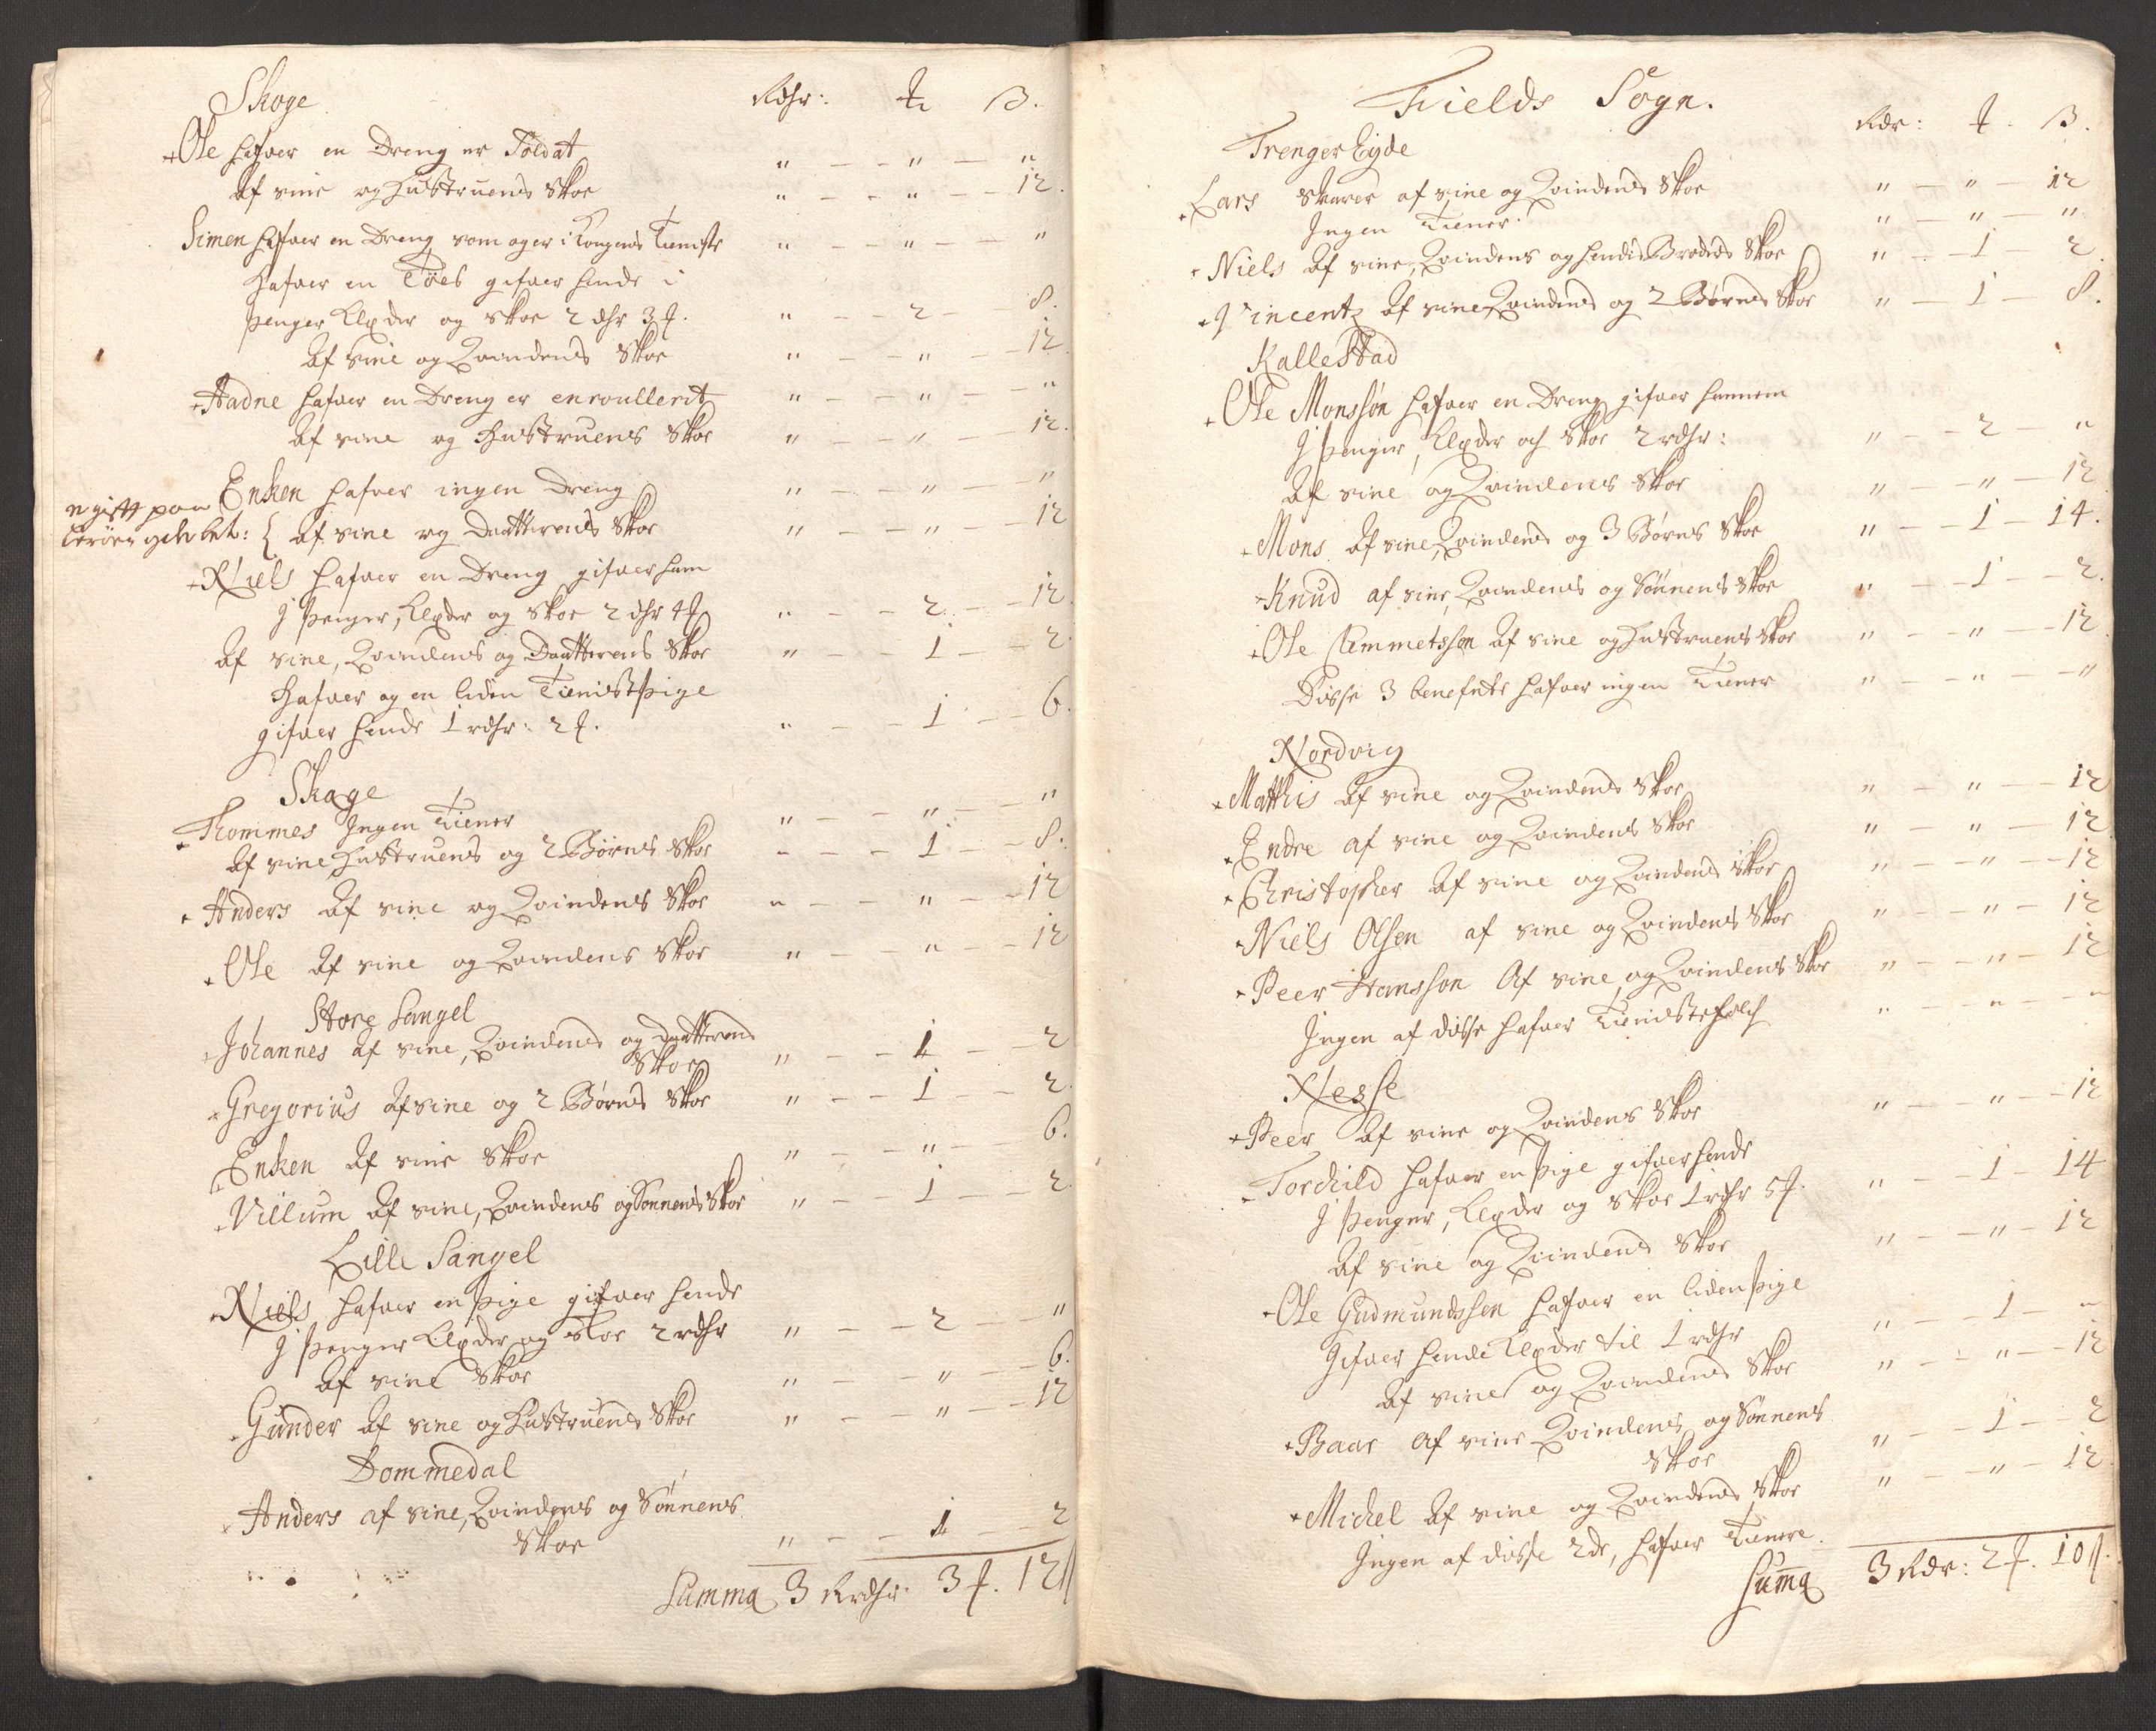 Skoge
Rdhr: ₰ ß.
+Ole hafver en Dreng er Soldat " — " — "
Af sine og Hustruens Skoe " — " — 12.
Simen hafver en Dreng som og er i Kongens Tieniste " — " — "
Hafver en Tøes gifver hende i
penger Klæder og skoe 2 dhr 3 ₰. " — 2 — 8.
Af sine og Qvindens Skoe " — " — 12
+Aadne hafver en Dreng er enroullerit " — " — "
Af sine og Hustruens Skoe " — " — 12.
Enken hafver ingen Dreng " — " — "
{ Af sine og Daatterens Skoe " — " — 12
+Niels hafver en Dreng gifver ham
J penger, Klæder og Skoe 2 dhr 4 ₰ " — 2 — 12.
Af sine, Qvindens og Daatterens Skoe " — 1 — 2
Hafver og en liden Tienistepige
gifver hende 1 rdhr: 2 ₰. " — 1 — 6.
Skage
+Thommes Ingen Tiener " — " — "
Af sine Hustruens og 2 Børns Skoe " — 1 — 8.
+Anders Af sine og Qvindens Skoe " — " — 12
+Ole Af sine og Qvindens Skoe " — " — 12
Store Sangel
+Johannes Af sine, Qvindens og Daatterens
Skoe " — 1 — 2
+Gregorius Af sine og 2 Børns Skoe " — 1 — 2.
+Enken Af sine Skoe " — " — 6.
+Villum Af sine, Qvindens og Sønnens Skoe " — 1 — 2.
Lille Sangel
+Niels hafver en pige gifver hende
J penger Klæder og Skoe 2 rdhr " — 2 — "
Af sine Skoe " — " — 6.
+Gunder Af sine og Hustruens Skoe " — " — 12
Dommedal
+Anders af sine, Qvindens og Sønnens
Skoe " — 1 — 2
Summa 3 Rrdhr. 3 ₰. 12 ß
Fields Sogn.
Rdr: ₰. ß.
Trenger Eyde
+Lars Svarer af sine og Qvindens Skoe " — " — 12
Ingen Tiener. " — " — "
+Niels Af sine, Qvindens og hendis Broders Skoe " — 1 — 2.
+Vincentz Af sine Qvindens og 2 Børns Skoe " — 1 — 8.
Kallestad
+Ole Monssøn hafver en Dreng gifver hannem
J penger, Klæder och Skoe 2 rdhr: " — 2 — "
Af sine og Qvindens Skoe " — " — 12
+Mons Af sine, Qvindens og 3 Børns Skoe " — 1 — 14.
+Knud af sine, Qvindens og Sønnens Skoe " — 1 — 2.
+Ole Clemmetssen Af sine og Hustruens Skoe " — " — 12
Disse 3 benefnte hafver ingen Tiener " — " — "
Nordvig
+Matthis Af sine og Qvindens Skoe " — " — 12
+Endre af sine og Qvindens Skoe " — " — 12
+Christopher Af sine og Qvindens Skoe " — " — 12
+Niels Olsen af sine og Qvindens Skoe " — " — 12
+Peer Hansson Af sine og Qvindens Skoe " — " — 12
Ingen af disse hafver Tienistefolch " — " — "
Nesse
+Peer Af sine og Qvindens Skoe " — " — 12
+Torchild hafver en pige gifver hende
J penger, Klæder og Skoe 1 rdhr 5 ₰. " — 1 — 14
Af sine og Qvindens Skoe " — " — 12
+Ole Gudmundssen hafver en liden pige
Gifver hende Klæder til 1 rdhr " — 1 — "
af sine og Qvindens Skoe " — " — 12
+Baar Af sine Qvindens og Sønnens
Skoe " — 1 — 2
+Michel Af sine og Qvindens Skoe " — " — 12
Ingen af disse 2de, hafver Tienere.
Suma 3 Rdr: 2 ₰. 10 ß.